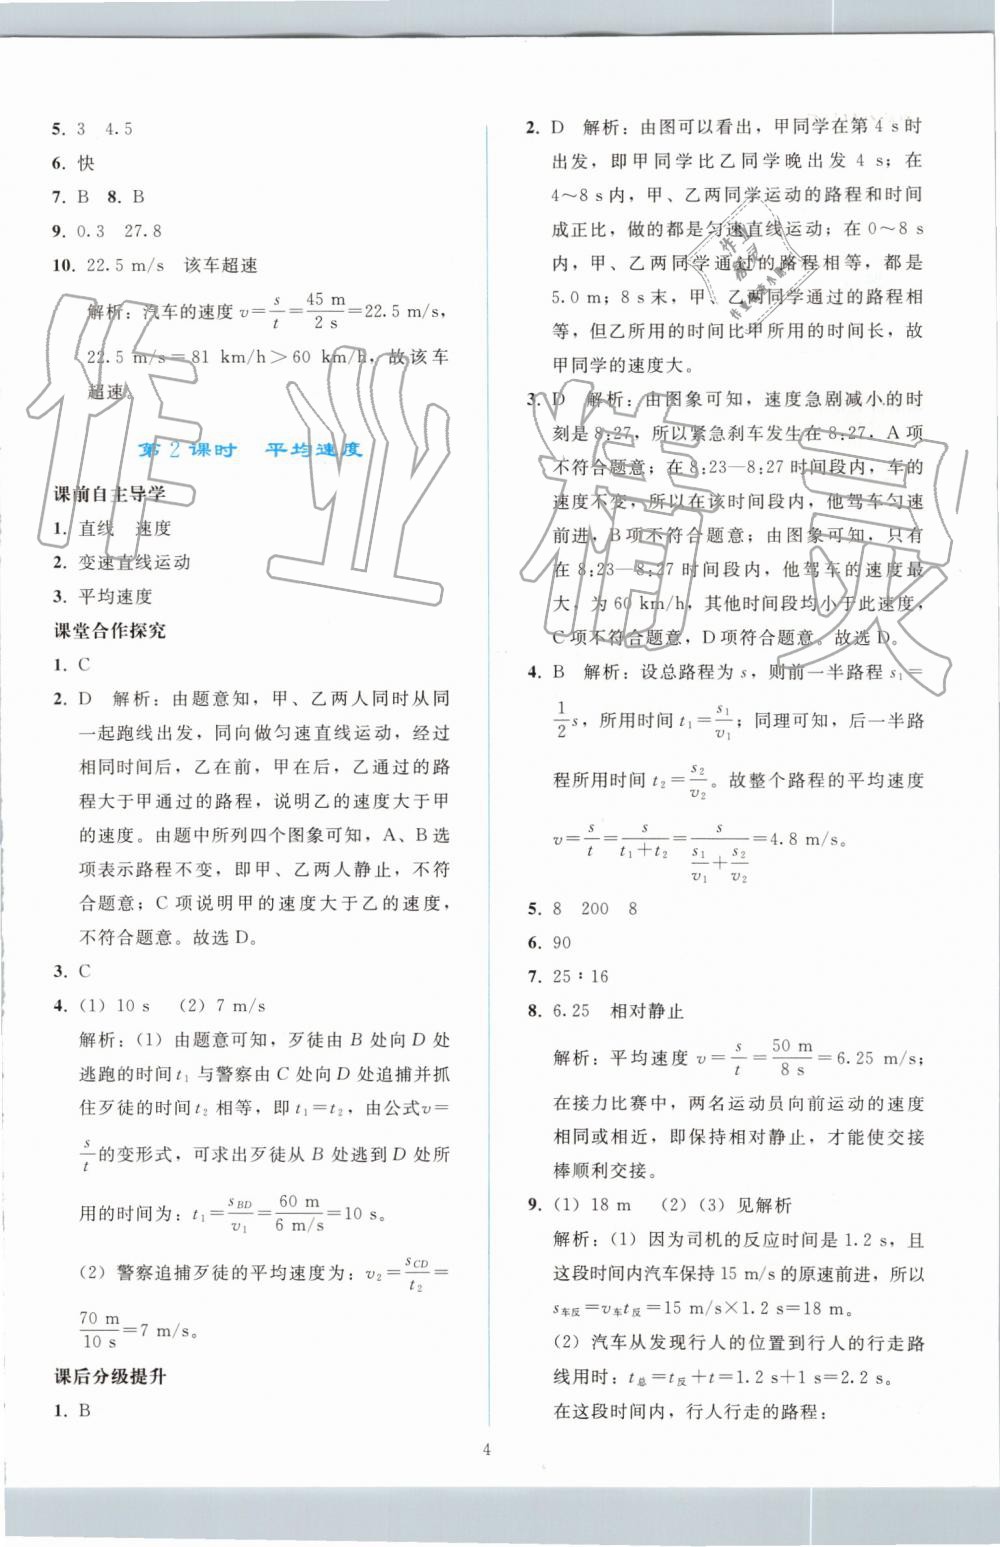 5. 3　4.5
6. 快
7. B　8. B
9. 0.3　27.8
10. 22.5 m/s　该车超速
解析：汽车的速度 v=s/t=45 m/2 s=22.5 m/s，
22.5 m/s=81 km/h>60 km/h，故该车
超速。
第2课时　平均速度
课前自主导学
1. 直线　速度
2. 变速直线运动
3. 平均速度
课堂合作探究
1. C
2. D　解析：由题意知，甲、乙两人同时从同
一起跑线出发，同向做匀速直线运动，经过
相同时间后，乙在前，甲在后，乙通过的路
程大于甲通过的路程，说明乙的速度大于甲
的速度。由题中所列四个图象可知，A、B选
项表示路程不变，即甲、乙两人静止，不符
合题意；C项说明甲的速度大于乙的速度，
不符合题意。故选D。
3. C
4. (1) 10 s　(2) 7 m/s
解析：(1) 由题意可知，歹徒由B处向D处
逃跑的时间t₁与警察由C处向D处追捕并抓
住歹徒的时间t₂相等，即t₁=t₂，由公式v=
s/t的变形式，可求出歹徒从B处逃到D处所
用的时间为：t₁=s_BD/v₁=60 m/6 m/s=10 s。
(2) 警察追捕歹徒的平均速度为：v₂=s_CD/t₂=
70 m/10 s=7 m/s。
课后分级提升
1. B
2. D　解析：由图可以看出，甲同学在第4 s时
出发，即甲同学比乙同学晚出发4 s；在
4～8 s内，甲、乙两同学运动的路程和时间
成正比，做的都是匀速直线运动；在0～8 s
内，甲、乙两同学通过的路程相等，都是
5.0 m；8 s末，甲、乙两同学通过的路程相
等，但乙所用的时间比甲所用的时间长，故
甲同学的速度大。
3. D　解析：由图象可知，速度急剧减小的时
刻是8:27，所以紧急刹车发生在8:27，A项
不符合题意；在8:23—8:27时间段内，车的
速度不变，所以在该时间段内，他驾车匀速
前进，B项不符合题意；由图象可知，只有
在8:23—8:27时间段内，他驾车的速度最
大，为60 km/h，其他时间段均小于此速度，
C项不符合题意，D项符合题意。故选D。
4. B　解析：设总路程为s，则前一半路程s₁=
1/2 s，所用时间t₁=s₁/v₁；同理可知，后一半路
程所用时间t₂=s₂/v₂。故整个路程的平均速度
v=s/t=s/(t₁+t₂)=s/(s₁/v₁+s₂/v₂)=4.8 m/s。
5. 8　200　8
6. 90
7. 25∶16
8. 6.25　相对静止
解析：平均速度v=s/t=50 m/8 s=6.25 m/s；
在接力比赛中，两名运动员向前运动的速度
相同或相近，即保持相对静止，才能使交接
棒顺利交接。
9. (1) 18 m　(2)(3) 见解析
解析：(1) 因为司机的反应时间是1.2 s，且
这段时间内汽车保持15 m/s的原速前进，所以
s车反=v车t反=15 m/s×1.2 s=18 m。
(2) 汽车从发现行人的位置到行人的行走路
线用时：t总=t反+t=1.2 s+1 s=2.2 s。
在这段时间内，行人行走的路程：
4
作业精灵